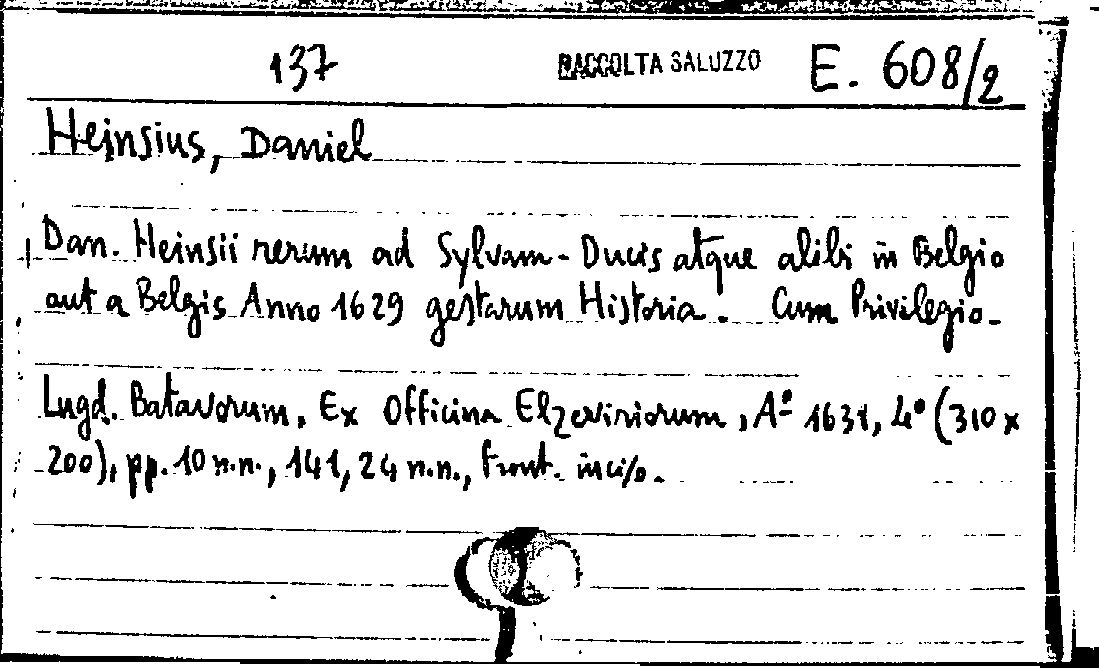 137 RACCOLTA SALUZZO E. 608/2
Heinsius, Daniel
Dan. Heinsii rerum ad Sylvam-Ducis atque alibi in Belgio
aut a Belgis Anno 1629 gestarum Historia. Cum Privilegio.
Lugd. Batavorum, Ex Officina Elzeviriorum, Aº 1631, 4º (310 x
200), pp. 10 n.n., 141, 24 n.n., front. inciso.